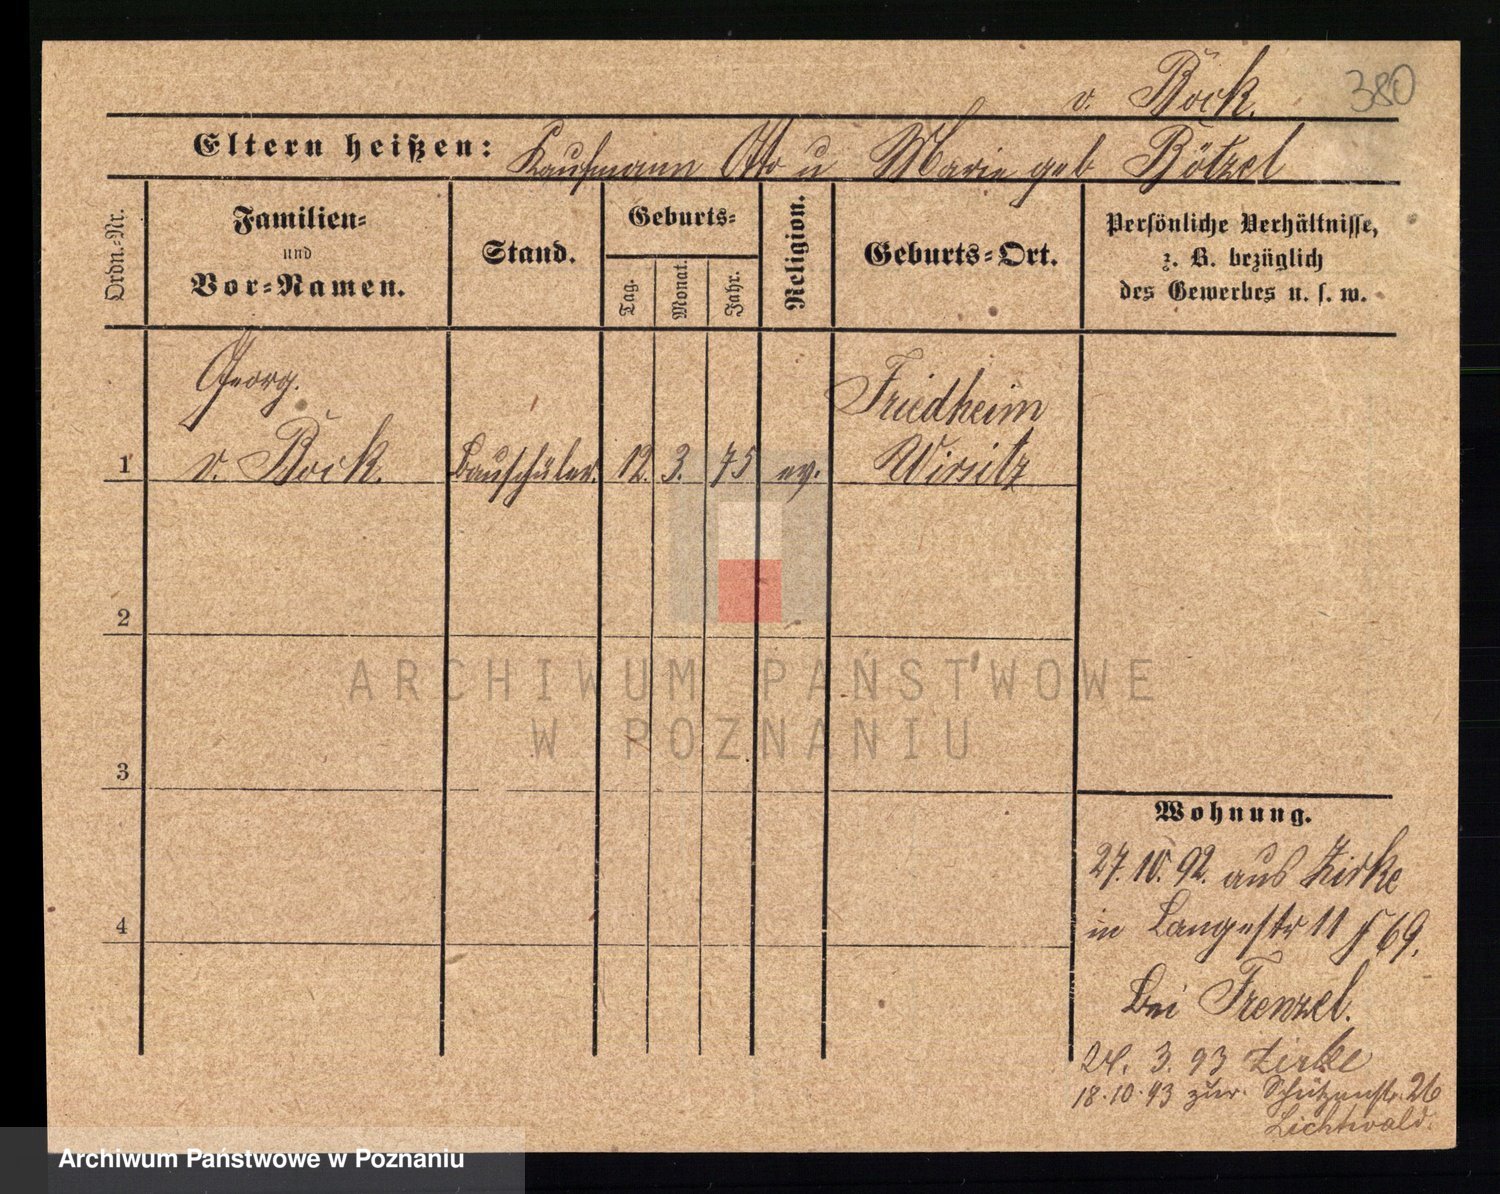 v. Bock.
380
Eltern heißen: Kaufmann Otto u Marie geb Bötzel
Ordn.-Nr.
Familien-
und
Vor-Namen.
Stand.
Geburts-
Tag.
Monat.
Jahr.
Religion.
Geburts-Ort.
Persönliche Verhältnisse,
z. B. bezüglich
des Gewerbes u. s. w.
Georg.
Friedheim
1 v. Bock. Bauschüler. 12. 3. 75 ev. Wirsitz
2
ARCHIWUM PAŃSTWOWE
W POZNANIU
3
Wohnung.
27. 10. 92. aus Zirke
4
in Langestr 11 69.
bei Frenzel.
24. 3. 93 Zirke
18.10.93 zur. Schützenstr. 26
Lichtwald.
Archiwum Państwowe w Poznaniu